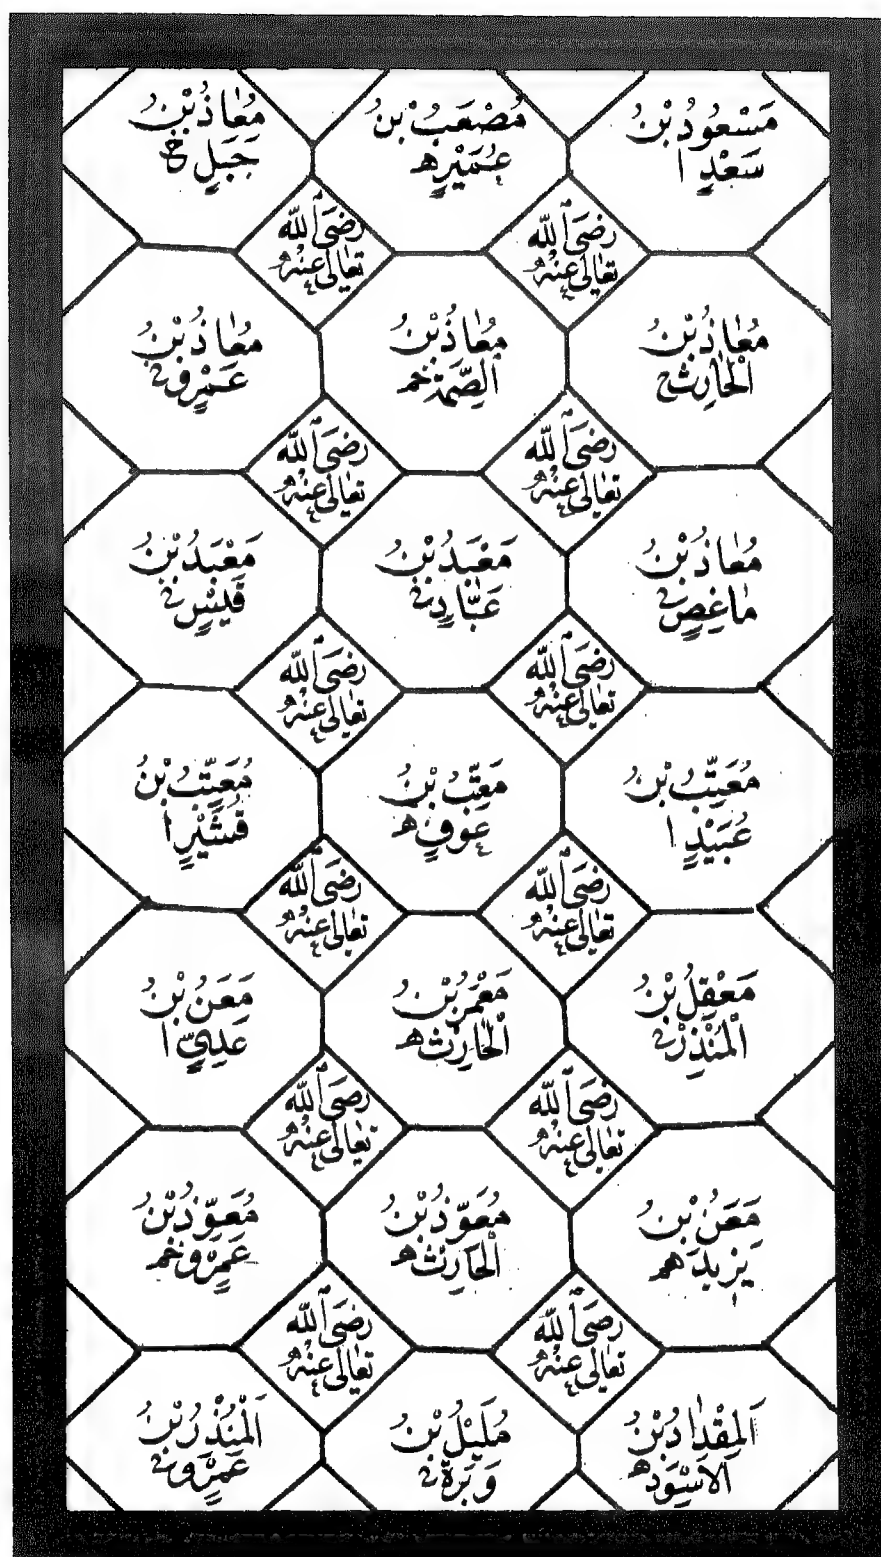 مَسْعُودُ بْنُ
سَعْدٍ ا
مُصْعَبُ بْنُ
عُمَيْرٍ ه
مُعَاذُ بْنُ
جَبَلٍ خ
رَضِيَ اللّٰهُ
تَعَالٰى عَنْهُ
رَضِيَ اللّٰهُ
تَعَالٰى عَنْهُ
مُعَاذُ بْنُ
الْحَارِثِ خ
مُعَاذُ بْنُ
الصِّمَّةِ خم
مُعَاذُ بْنُ
عَمْرٍو خ
رَضِيَ اللّٰهُ
تَعَالٰى عَنْهُ
رَضِيَ اللّٰهُ
تَعَالٰى عَنْهُ
مُعَاذُ بْنُ
مَاعِصٍ خ
مَعْبَدُ بْنُ
عَبَّادٍ خ
مَعْبَدُ بْنُ
قَيْسٍ خ
رَضِيَ اللّٰهُ
تَعَالٰى عَنْهُ
رَضِيَ اللّٰهُ
تَعَالٰى عَنْهُ
مُعَتِّبُ بْنُ
عُبَيْدٍ ا
مُعَتِّبُ بْنُ
عَوْفٍ ه
مُعَتِّبُ بْنُ
قُشَيْرٍ ا
رَضِيَ اللّٰهُ
تَعَالٰى عَنْهُ
رَضِيَ اللّٰهُ
تَعَالٰى عَنْهُ
مَعْقِلُ بْنُ
الْمُنْذِرِ خ
مَعْمَرُ بْنُ
الْحَارِثِ ه
مَعَنُ بْنُ
عَدِيٍّ ا
رَضِيَ اللّٰهُ
تَعَالٰى عَنْهُ
رَضِيَ اللّٰهُ
تَعَالٰى عَنْهُ
مَعَنُ بْنُ
يَزِيدَ هم
مُعَوِّذُ بْنُ
الْحَارِثِ ه
مُعَوِّذُ بْنُ
عَمْرٍو خم
رَضِيَ اللّٰهُ
تَعَالٰى عَنْهُ
رَضِيَ اللّٰهُ
تَعَالٰى عَنْهُ
اَلْمِقْدَادُ بْنُ
الْاَسْوَدِ ه
مُلَيْلُ بْنُ
وَبَرَةَ خ
اَلْمُنْذِرُ بْنُ
عَمْرٍو خ